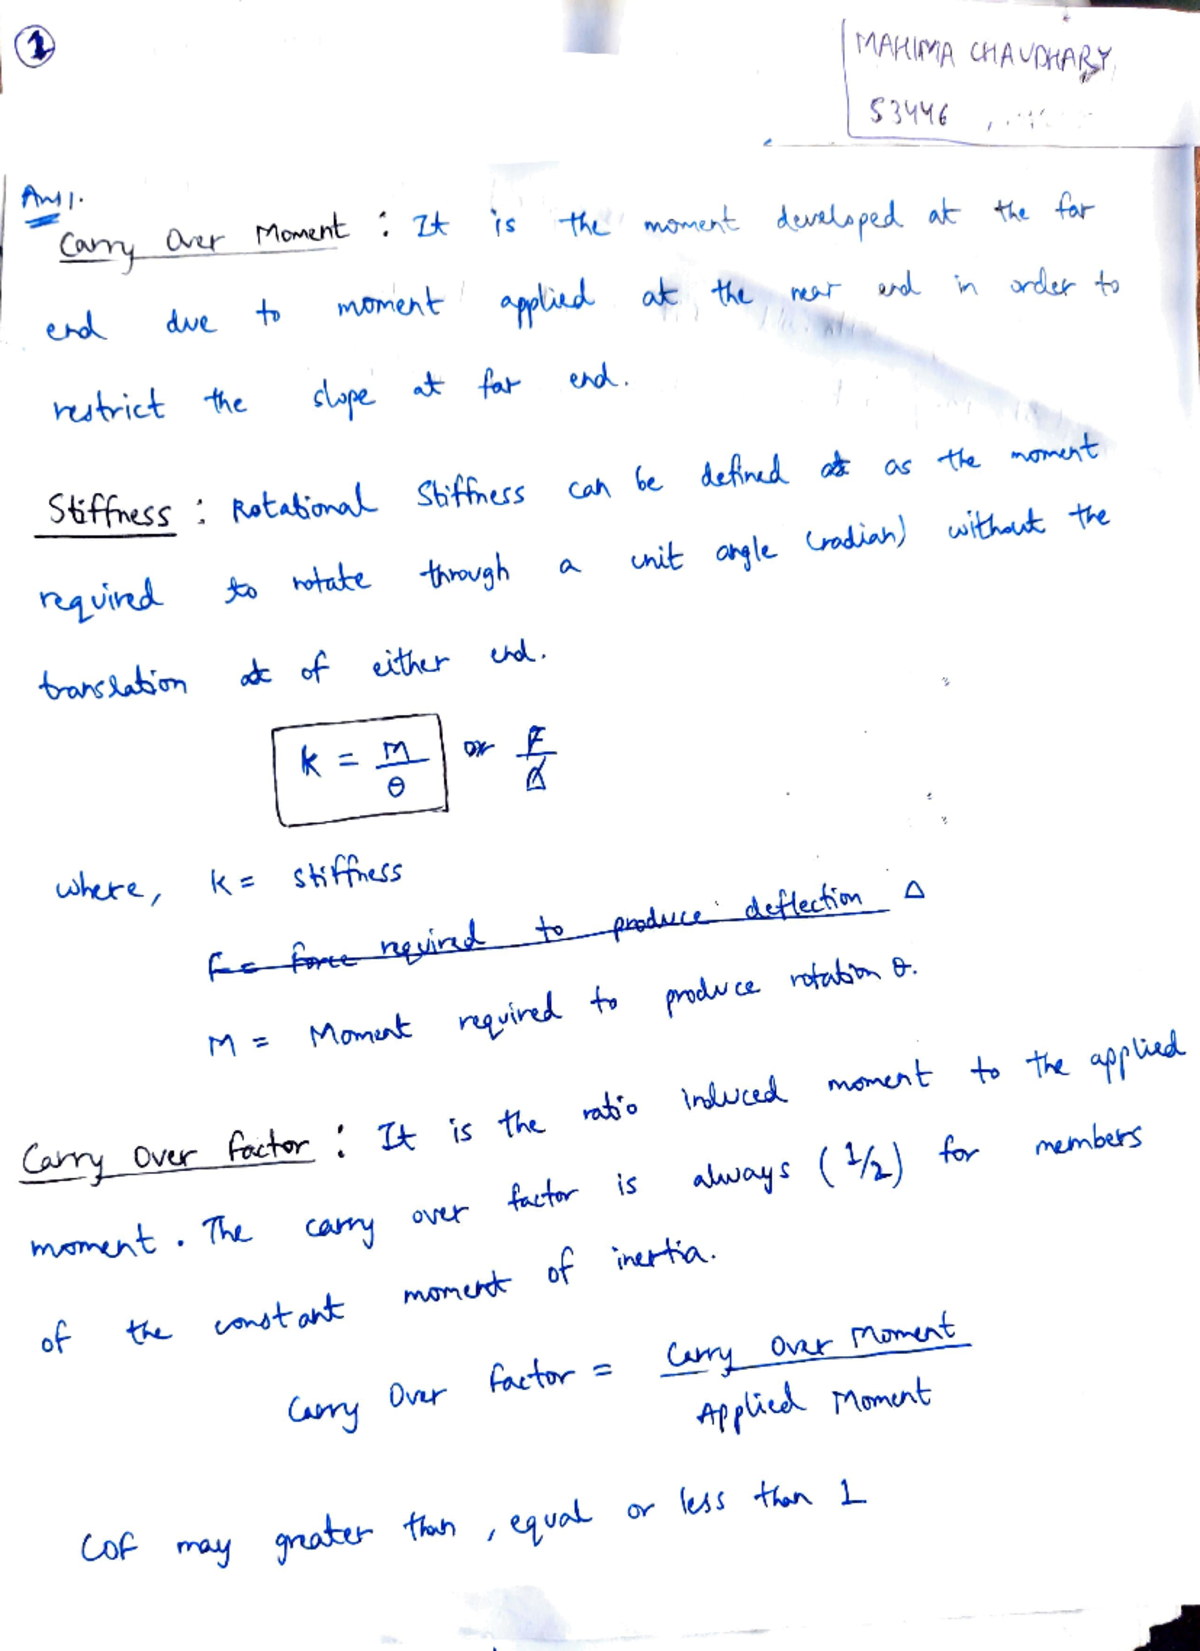 1
MAHIMA CHAUDHARY
53446
Ans 1.
Carry Over Moment : It is the moment developed at the far
end due to moment applied at the near end in order to
restrict the slope at far end.
Stiffness : Rotational Stiffness can be defined as the moment
required to rotate through a unit angle (radian) without the
translation of either end.
k = M/θ or F/Δ
where, k = stiffness
F = force required to produce deflection Δ
M = Moment required to produce rotation θ.
Carry Over factor : It is the ratio induced moment to the applied
moment. The carry over factor is always (1/2) for members
of the constant moment of inertia.
Carry Over factor = Carry Over Moment / Applied Moment
COF may greater than, equal or less than 1